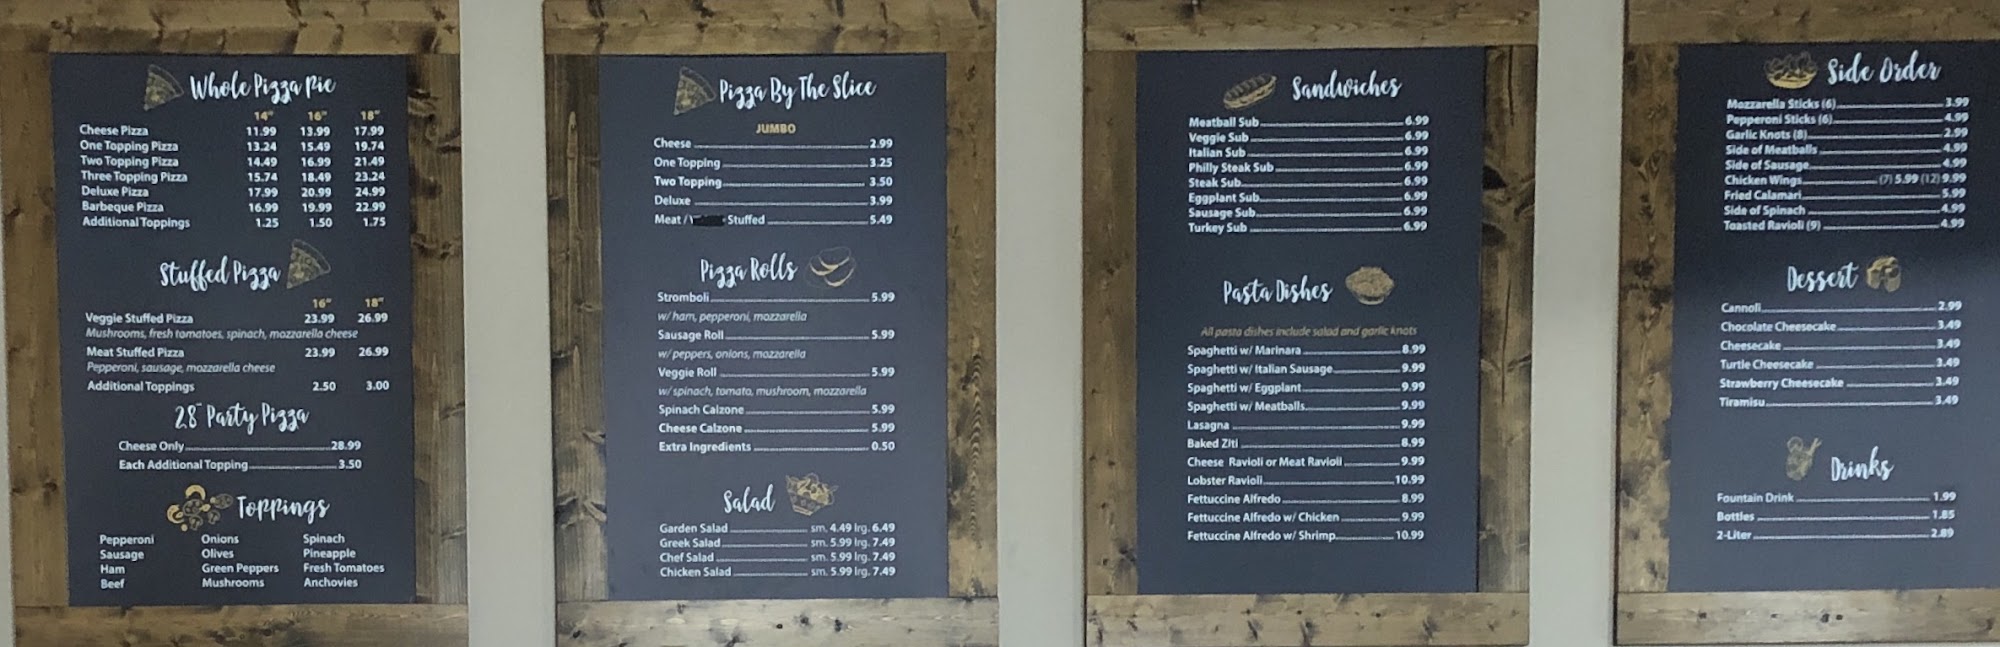 Whole Pizza Pie
14" 16" 18"
Cheese Pizza 11.99 13.99 17.99
One Topping Pizza 13.24 15.49 19.74
Two Topping Pizza 14.49 16.99 21.49
Three Topping Pizza 15.74 18.49 23.24
Deluxe Pizza 17.99 20.99 24.99
Barbeque Pizza 16.99 19.99 22.99
Additional Toppings 1.25 1.50 1.75
Stuffed Pizza
16" 18"
Veggie Stuffed Pizza 23.99 26.99
Mushrooms, fresh tomatoes, spinach, mozzarella cheese
Meat Stuffed Pizza 23.99 26.99
Pepperoni, sausage, mozzarella cheese
Additional Toppings 2.50 3.00
28" Party Pizza
Cheese Only 28.99
Each Additional Topping 3.50
Toppings
Pepperoni Onions Spinach
Sausage Olives Pineapple
Ham Green Peppers Fresh Tomatoes
Beef Mushrooms Anchovies
Pizza By The Slice
JUMBO
Cheese 2.99
One Topping 3.25
Two Topping 3.50
Deluxe 3.99
Meat / Stuffed 5.49
Pizza Rolls
Stromboli 5.99
w/ ham, pepperoni, mozzarella
Sausage Roll 5.99
w/ peppers, onions, mozzarella
Veggie Roll 5.99
w/ spinach, tomato, mushroom, mozzarella
Spinach Calzone 5.99
Cheese Calzone 5.99
Extra Ingredients 0.50
Salad
Garden Salad sm. 4.49 lrg. 6.49
Greek Salad sm. 5.99 lrg. 7.49
Chef Salad sm. 5.99 lrg. 7.49
Chicken Salad sm. 5.99 lrg. 7.49
Sandwiches
Meatball Sub 6.99
Veggie Sub 6.99
Italian Sub 6.99
Philly Steak Sub 6.99
Steak Sub 6.99
Eggplant Sub 6.99
Sausage Sub 6.99
Turkey Sub 6.99
Pasta Dishes
All pasta dishes include salad and garlic knots
Spaghetti w/ Marinara 8.99
Spaghetti w/ Italian Sausage 9.99
Spaghetti w/ Eggplant 9.99
Spaghetti w/ Meatballs 9.99
Lasagna 9.99
Baked Ziti 8.99
Cheese Ravioli or Meat Ravioli 9.99
Lobster Ravioli 10.99
Fettuccine Alfredo 8.99
Fettuccine Alfredo w/ Chicken 9.99
Fettuccine Alfredo w/ Shrimp 10.99
Side Order
Mozzarella Sticks (6) 3.99
Pepperoni Sticks (6) 4.99
Garlic Knots (8) 2.99
Side of Meatballs 4.99
Side of Sausage 4.99
Chicken Wings (7) 5.99 (12) 9.99
Fried Calamari 5.99
Side of Spinach 4.99
Toasted Ravioli (9) 4.99
Dessert
Cannoli 2.99
Chocolate Cheesecake 3.49
Cheesecake 3.49
Turtle Cheesecake 3.49
Strawberry Cheesecake 3.49
Tiramisu 3.49
Drinks
Fountain Drink 1.99
Bottles 1.85
2-Liter 2.89